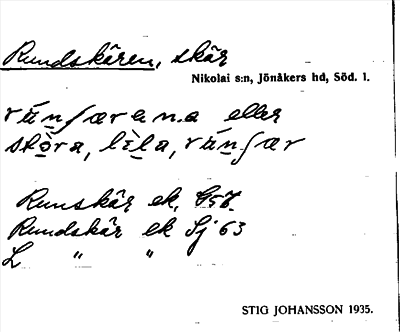 Rundskären, skär
Nikolai s:n, Jönåkers hd, Söd. l.
eller
stòra, lìla,
Runskär ek. G57.
Rundskär ek Sj 63
L " "
STIG JOHANSSON 1935.